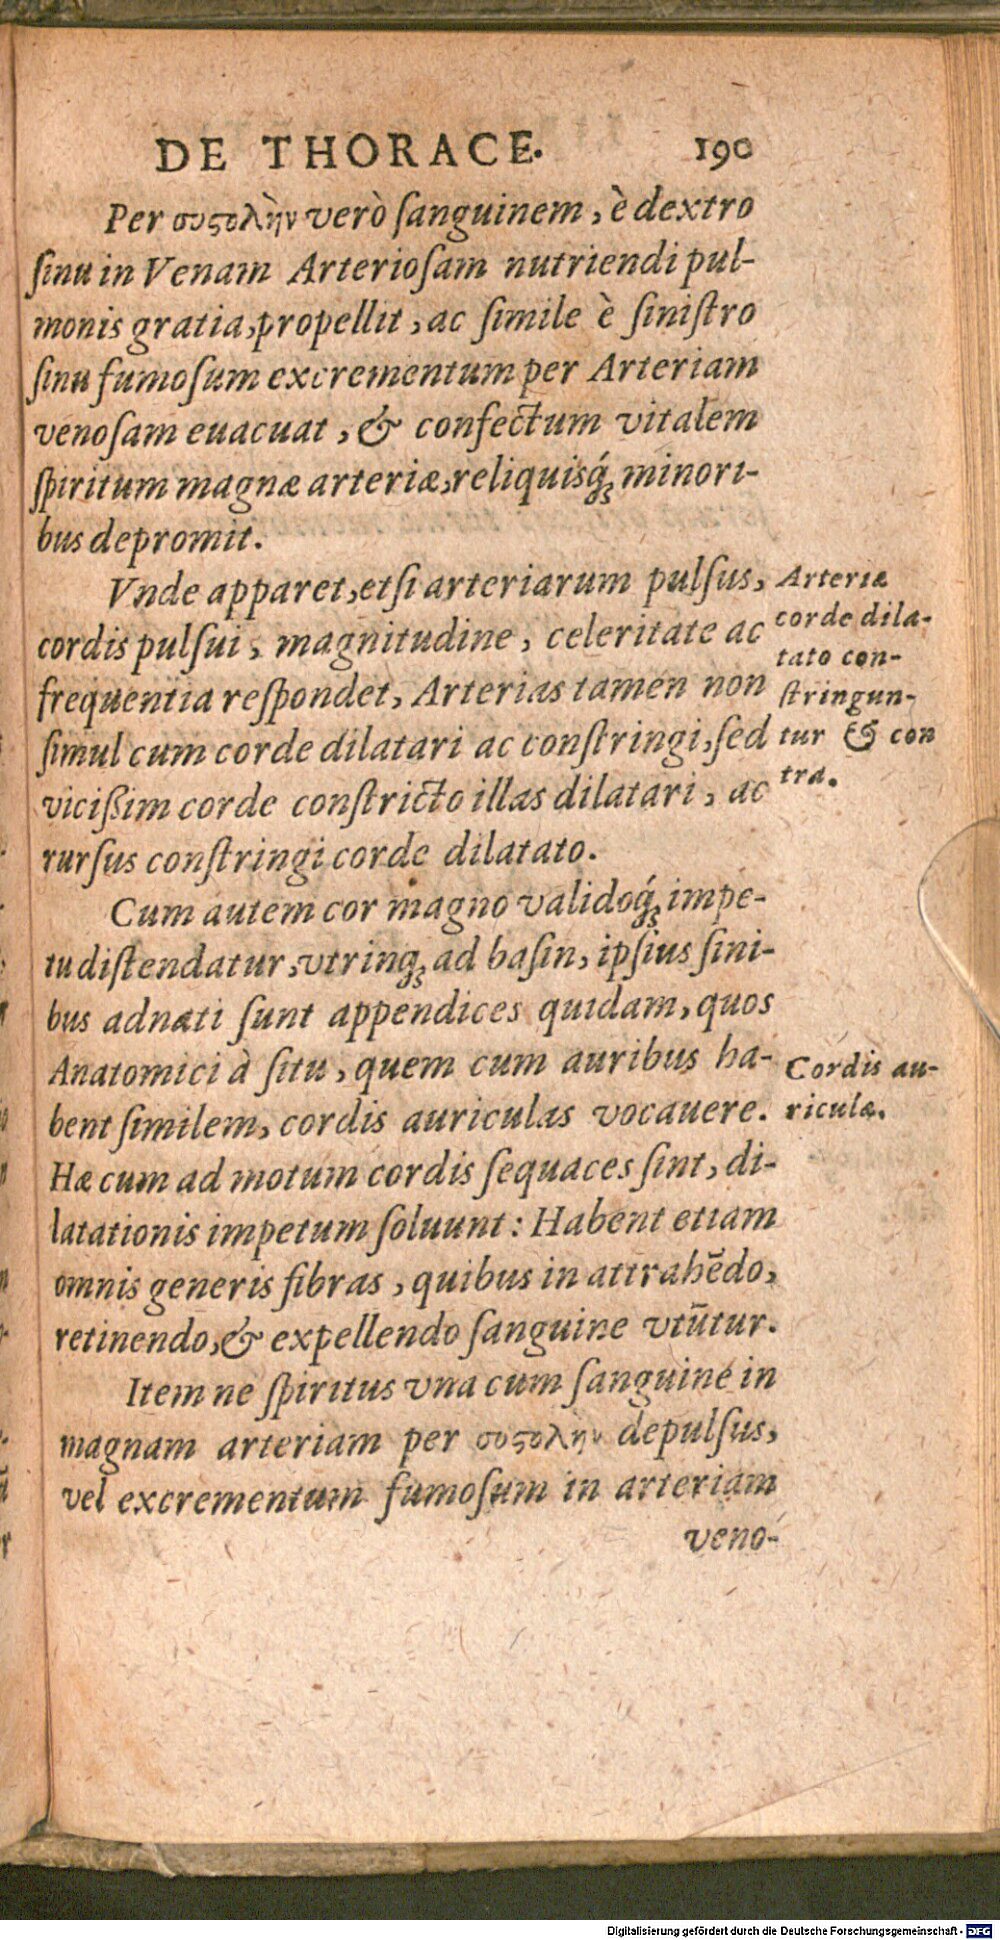 DE THORACE. 190
Per συςολὴν verò ſanguinem, è dextro
ſinu in Venam Arterioſam nutriendi pul-
monis gratia, propellit, ac ſimile è ſiniſtro
ſinu fumoſum excrementum per Arteriam
venoſam euacuat, & confectum vitalem
ſpiritum magnæ arteriæ, reliquisq́ꝫ minori-
bus depromit.
Vnde apparet, etſi arteriarum pulſus,
cordis pulſui, magnitudine, celeritate ac
frequentia reſpondet, Arterias tamen non
ſimul cum corde dilatari ac conſtringi, ſed
vicißim corde conſtricto illas dilatari, ac
rurſus conſtringi corde dilatato.
Arteriæ
corde dila-
tato con-
ſtringun-
tur & con
tra.
Cum autem cor magno validoq́ꝫ impe-
tu diſtendatur, vtrinqꝫ ad baſin, ipſius ſini-
bus adnati ſunt appendices quidam, quos
Anatomici à ſitu, quem cum auribus ha-
bent ſimilem, cordis auriculas vocauere.
Hæ cum ad motum cordis ſequaces ſint, di-
latationis impetum ſoluunt: Habent etiam
omnis generis fibras, quibus in attrahēdo,
retinendo, & expellendo ſanguine vtūtur.
Cordis au-
riculæ.
Item ne ſpiritus vna cum ſanguine in
magnam arteriam per συςολὴν depulſus,
vel excrementum fumoſum in arteriam
veno-
Digitalisierung gefördert durch die Deutsche Forschungsgemeinschaft - DFG